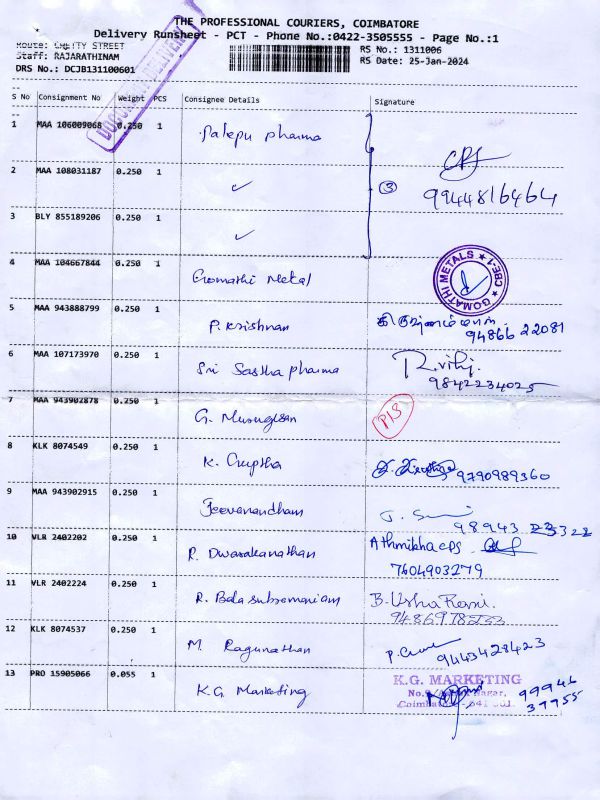 THE PROFESSIONAL COURIERS, COIMBATORE
Delivery Runsheet - PCT - Phone No.:0422-3505555 - Page No.:1
Route: CHETTY STREET
RS No.: 1311006
Staff: RAJARATHINAM
RS Date: 25-Jan-2024
DRS No.: DCJB131100601
S No Consignment No Weight PCS Consignee Details Signature
1 MAA 106009068 0.250 1 Palepu pharma
2 MAA 108031187 0.250 1 ✓ ③ 9944816464
3 BLY 855189206 0.250 1 ✓
4 MAA 104667844 0.250 1 Gomathi Metal GOMATHI METALS ★ CBE-1 ★
5 MAA 943888799 0.250 1 P. Krishnan 94866 22081
6 MAA 107173970 0.250 1 Sri Sastha pharma 9842234025
7 MAA 943902878 0.250 1 G. Murugesan
8 KLK 8074549 0.250 1 K. Cruptha 9790989360
9 MAA 943902915 0.250 1 Jeevanandham 98943
10 VLR 2402202 0.250 1 R. Dwarakanathan Athmikha cps
7604903279
11 VLR 2402224 0.250 1 R. Bala subramaniam B. Usha Rani.
12 KLK 8074537 0.250 1 M. Ragunathan 9443428423
13 PRO 15905066 0.055 1 K.G. Marketing K.G. MARKETING
99946
37955